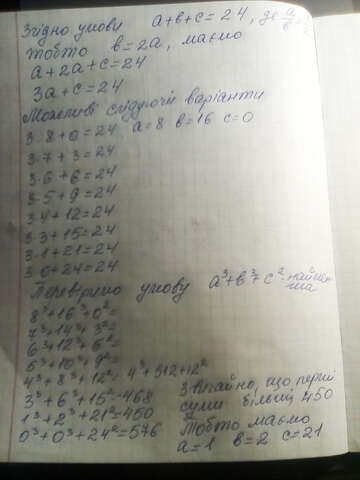 Згідно умови a+b+c=24, де a/b
тобто b=2a, маємо
a+2a+c=24
3a+c=24
Можливі слідуючі варіанти
3·8+0=24 a=8 b=16 c=0
3·7+3=24
3·6+6=24
3·5+9=24
3·4+12=24
3·3+15=24
3·1+21=24
3·0+24=24
Перевіримо умову a³+b³+c² - найменша
8³+16³+0²=
7³+14³+3²=
6³+12³+6²=
5³+10³+9²=
4³+8³+12²=4³+512+12²
3³+6³+15²=468
1³+2³+21²=450
0³+0³+24²=576
Звичайно, що перші
суми більші 450
Тобто маємо
a=1 b=2 c=21